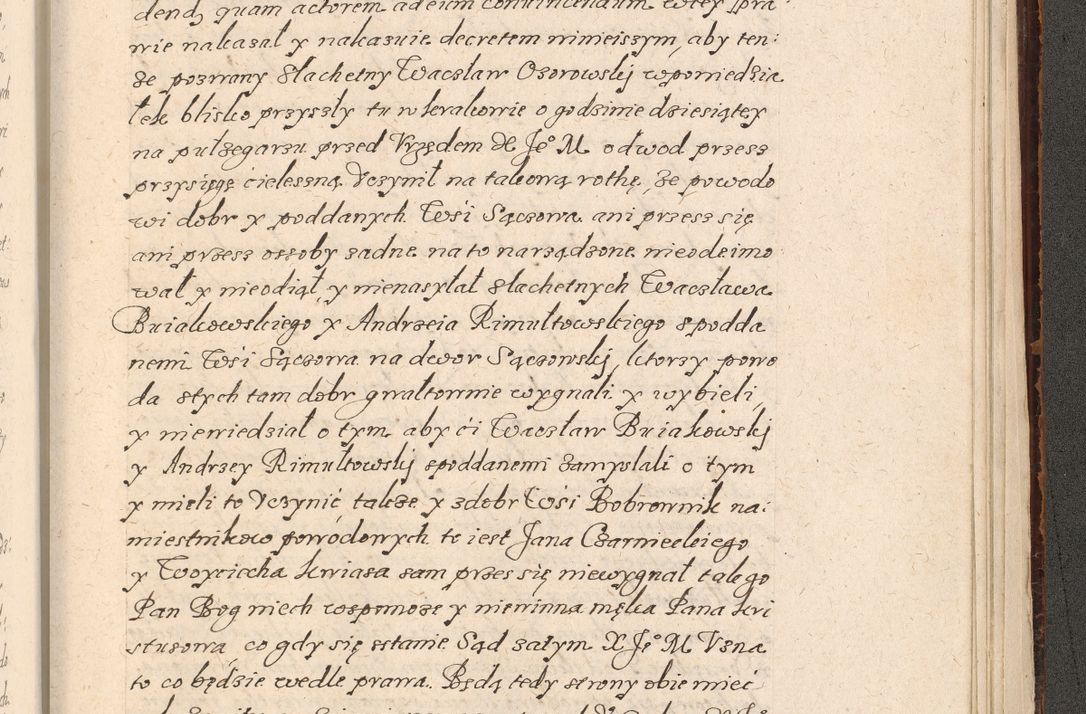 dendą quam actorem ad eum convincendum wtey spra
wie nakasał y nakazuie decretem ninieiszym, aby ten:
że pozwany Slachetny Wacsław Ozorowskij wponiedzia
łek blisko przyszły tu w krakowie o godzinie dziesiątey
na pułzegarzu przed Vrzędem X Je° M. odwod przesz
przysięgę cielesną Vczynił na takową rothę, że powodo
wi dobr y poddanych Wsi Sączowa ani przesz się
ani przesz ossoby zadne na to narządzone nieodeimo
wał y nieodiął, y nienasyłał Slachetnych Wacsława
Briakowskiego y Andrzeia Rimułtowskiego spodda
nemi Wsi Sączowa na dwor Sączowskij, ktorzy powo
da stych tam dobr gwałtownie wygnali y wybieli,
y niewiedział o tym aby ci Wacsław Briakowskij
y Andrzey Rimułtowskij spoddanemi zamyslali o tym
y mieli to Vczynić takze y zdobr Wsi Bobrownik na:
miestnikow powodowych to iest Jana Czarnieckiego
y Woyciecha kwiasa sam przes się niewygnał tak go
Pan Bog niech wspomoze y niewinna męka Pana kri
stusowa, co gdy się sstanie Sąd załym X Je° M Vzna
to co będzie wedle prawa. Będą tedy strony obie mieć